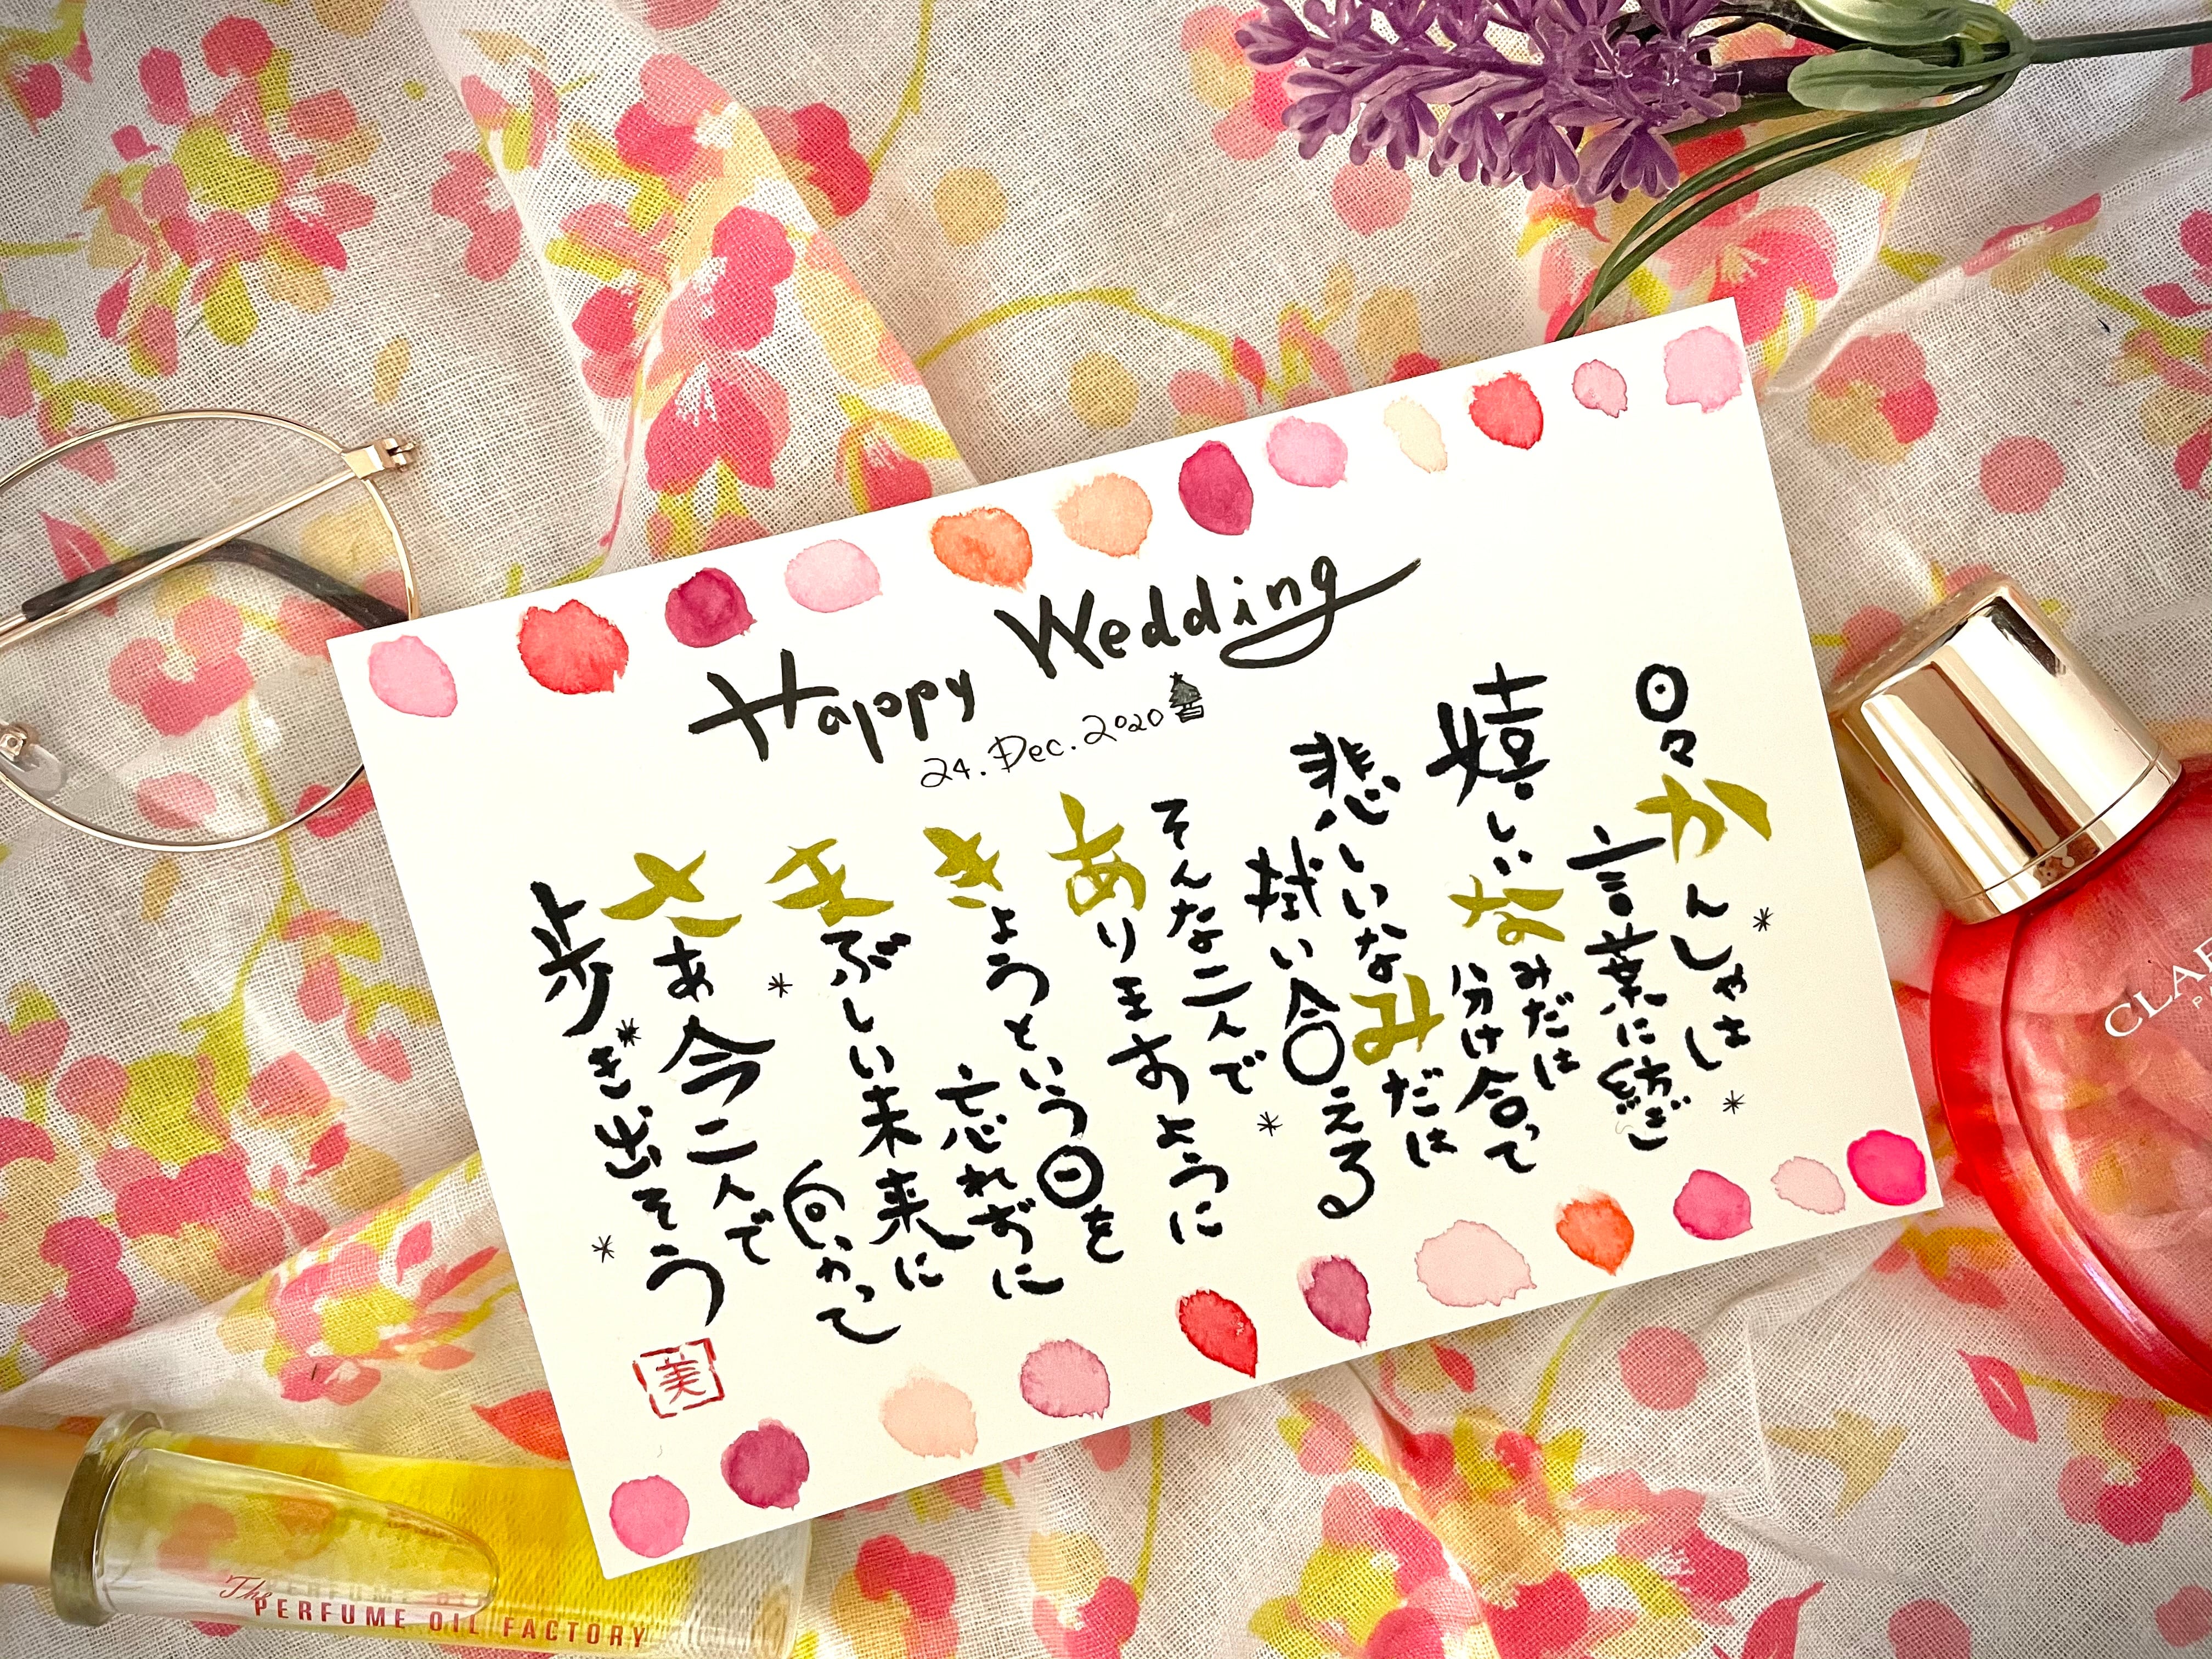 Happy Wedding
24. Dec. 2020
日々かんしゃは
言葉に紡ぎ
嬉しいなみだは
分け合って
悲しいなみだは
拭い合える
そんな二人で
ありますように
きょうという日を
忘れずに
まぶしい未来に
向かって
さあ今二人で
歩き出そう
美
The
PERFUME OIL FACTORY